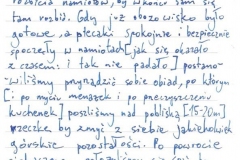 rozbicia namiotów, by w końcu sam się
tam rozbić. Gdy już obozowisko było
gotowe, a plecaki spokojne i bezpiecznie
spoczęły w namiotach [jak się okazało
z czasem: i tak nie padało] postano-
wiliśmy przyrządzić sobie obiad, po którym
[i po myciu menażek i po przeczyszczeniu
kuchenek] poszliśmy nad pobliską [15-20m]
rzeczkę by zmyć z siebie jakiekolwiek
górskie pozostałości. Po powrocie